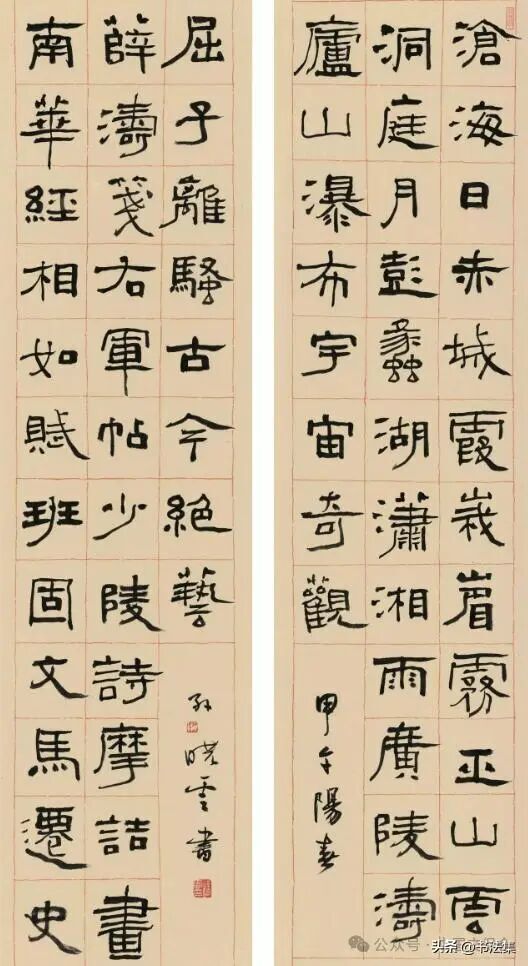 滄海日赤城霞峩嵋霧巫山雲
洞庭月彭蠡湖瀟湘雨廣陵濤
廬山瀑布宇宙奇觀
甲午陽春
南華經相如賦班固文馬遷史
薛濤箋右軍帖少陵詩摩詰畫
屈子離騷古今絕藝
孫曉雲書
公众号
头条 @书法集